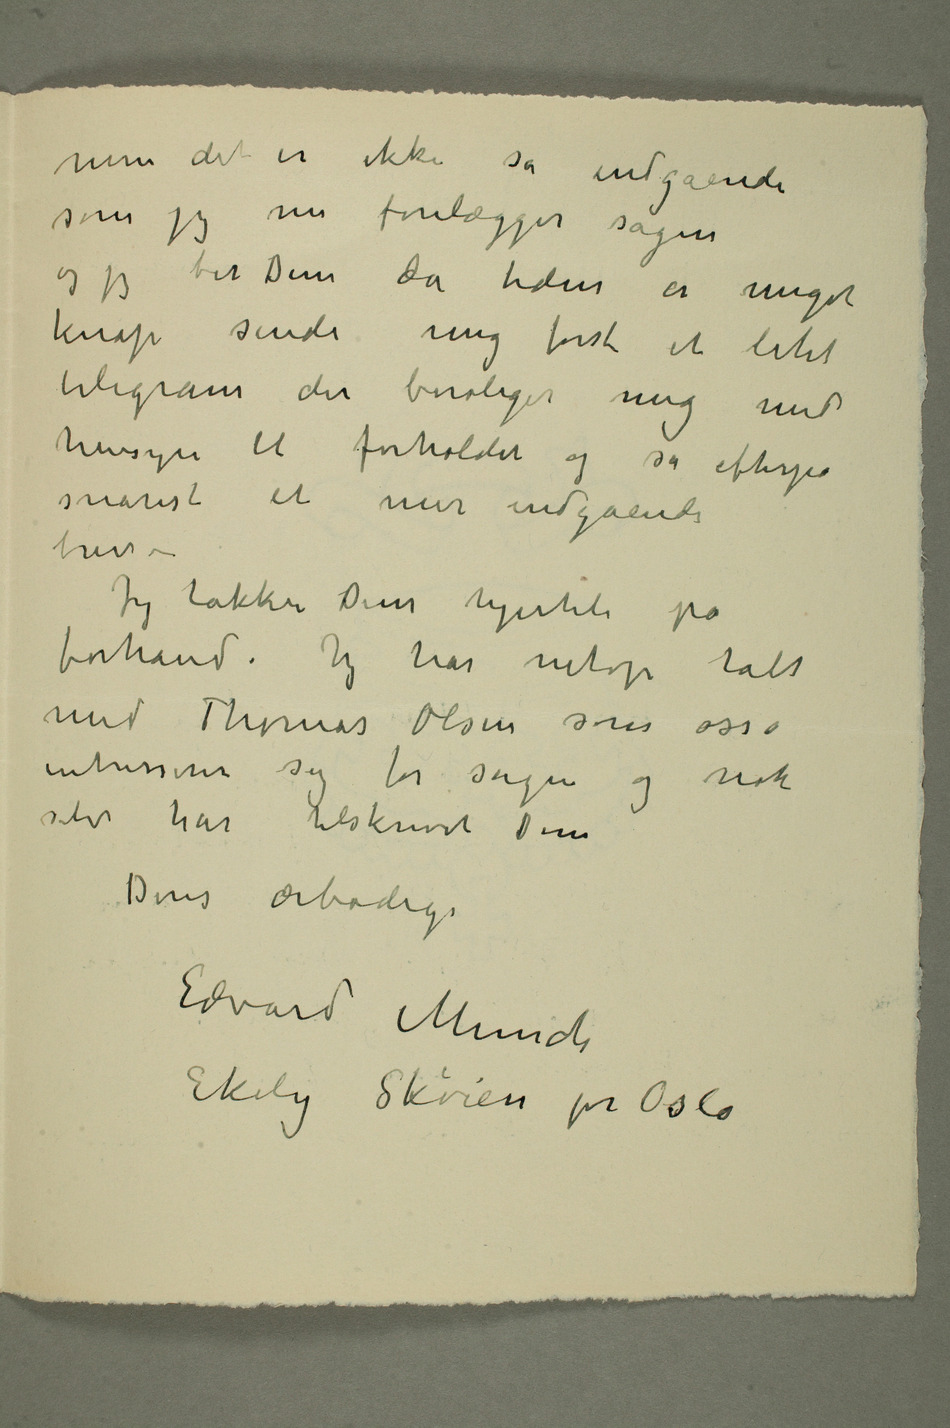 men det er ikke så indgående
som jeg nu forelægger sagen
og jeg ber Dem da tiden er meget
knap sende mig først et litet
telegram der beroliger mig med
hensyn til forholdet og så efterpå
snarest et mer indgående
brev –
Jeg takker Dem hjerteli på
forhånd. Jeg har netop talt
med Thomas Olsen som osså
interesserer seg for sagen og nok
selv har tilskrevet Dem
Deres ærbødige
Edvard Munch
Ekely Skøien pr Oslo